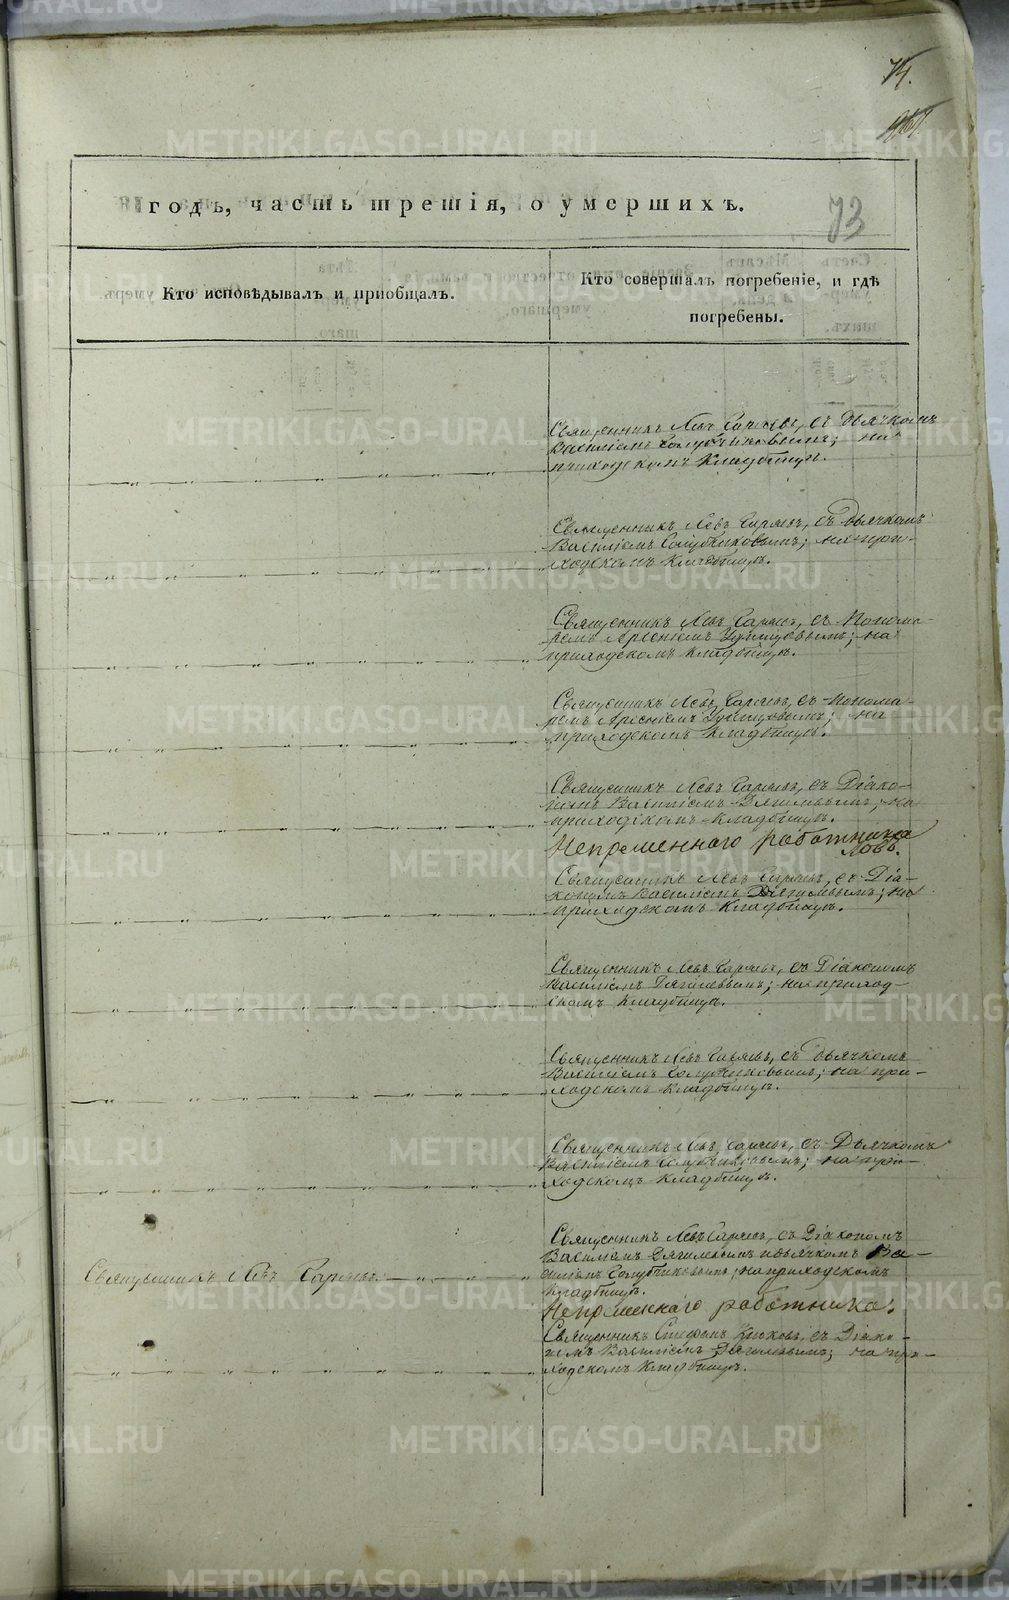 74.
73
годъ, часть третія, о умершихъ.
Кто исповѣдывалъ и пріобщалъ.
Кто совершалъ погребеніе, и гдѣ
погребены.
Священникъ Левъ съ Дьячкомъ
Василіемъ Голубчиковымъ; на
приходскомъ кладбищѣ.
Священникъ Левъ съ Дьячкомъ
Василіемъ Голубчиковымъ; на при-
ходскомъ кладбищѣ.
Священникъ Левъ съ Понома-
ремъ Арсеніемъ на
приходскомъ кладбищѣ.
Священникъ Левъ съ Понома-
ремъ Арсеніемъ на
приходскомъ кладбищѣ.
Священникъ Левъ съ Діако-
номъ Василіемъ Дягилевымъ; на
приходскомъ кладбищѣ.
Непременнаго работника
Священникъ Левъ съ Діа-
кономъ Василіемъ Дягилевымъ; на
приходскомъ кладбищѣ.
Священникъ Левъ съ Діакономъ
Василіемъ Дягилевымъ; на приход-
скомъ кладбищѣ.
Священникъ Левъ съ Дьячкомъ
Василіемъ Голубчиковымъ; на при-
ходскомъ кладбищѣ.
Священникъ Левъ съ Дьячкомъ
Василіемъ Голубчиковымъ; на при-
ходскомъ кладбищѣ.
Священникъ Левъ
Священникъ Левъ съ Діакономъ
Василіемъ Дягилевымъ и дьячкомъ Ва-
силіемъ Голубчиковымъ; на приходскомъ
кладбищѣ.
Непременнаго работника:
Священникъ Стефанъ съ Діако-
номъ Василіемъ Дягилевымъ; на при-
ходскомъ кладбищѣ.
METRIKI.GASO-URAL.RU